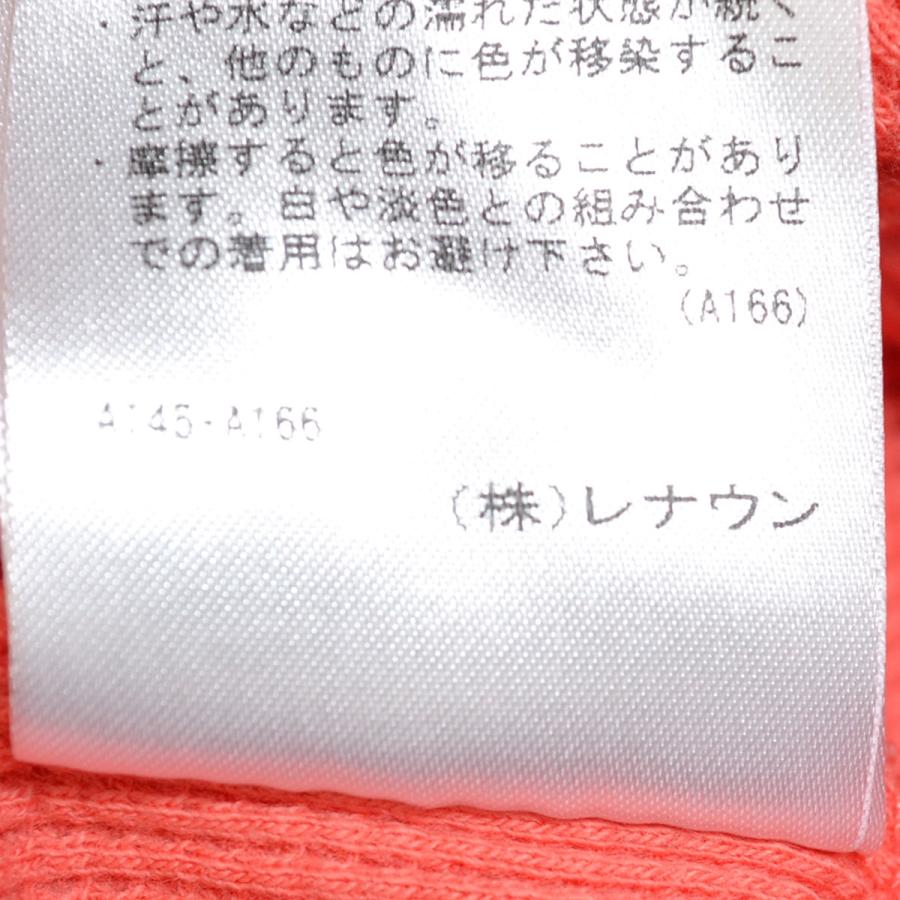 ・汗や水などの濡れた状態が続く
と、他のものに色が移染するこ
とがあります。
・摩擦すると色が移ることがあり
ます。白や淡色との組み合わせ
での着用はお避け下さい。
(A166)
A145-A166
(株)レナウン